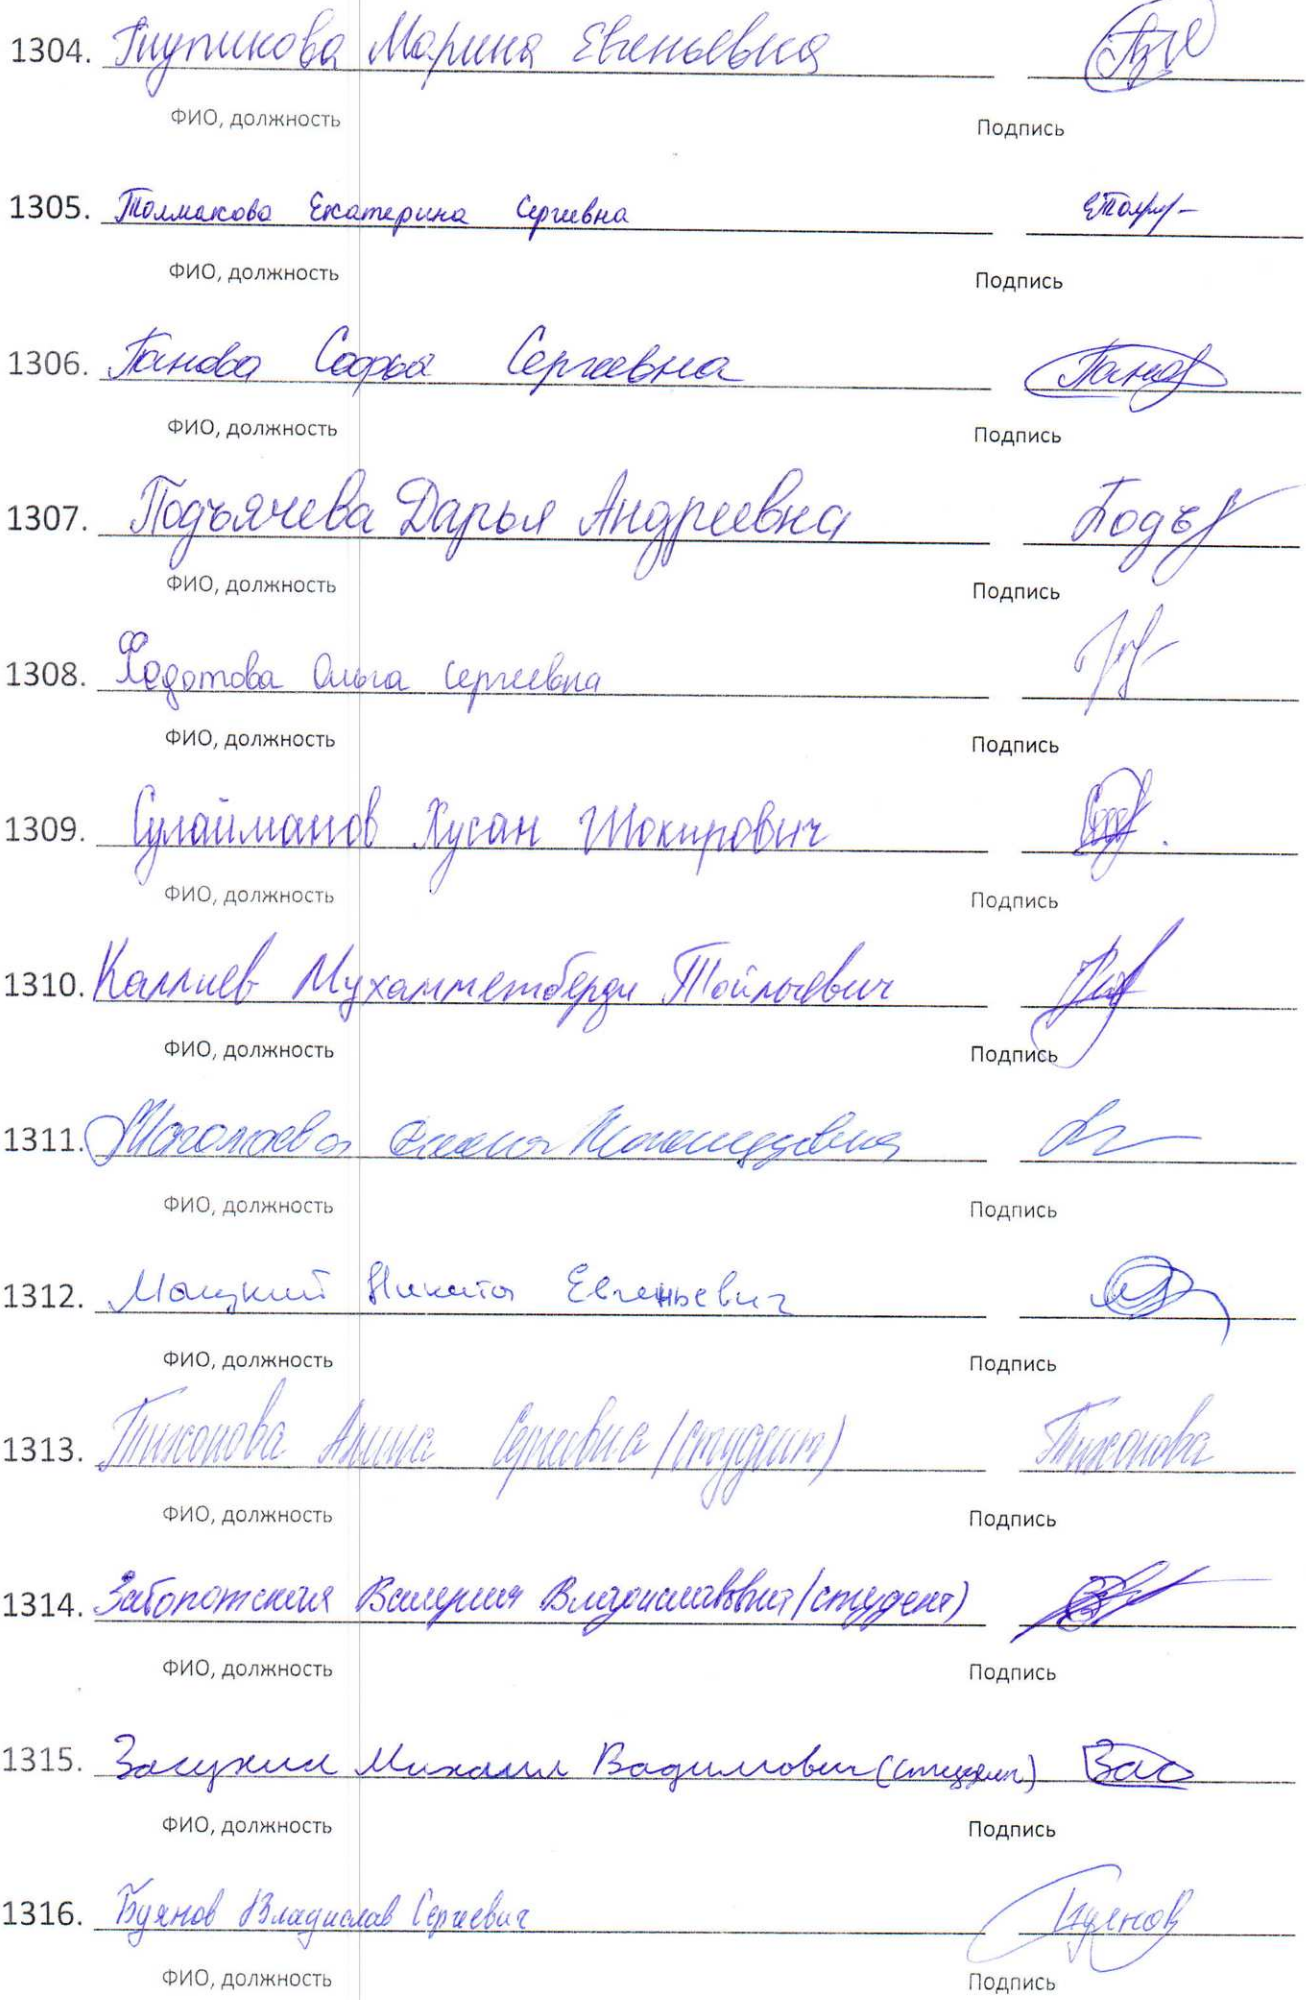 1304. Глупикова Марина Евгеньевна
ФИО, должность Подпись
1305. Толмакова Екатерина Сергеевна
ФИО, должность Подпись
1306. Панова Софья Сергеевна Панов
ФИО, должность Подпись
1307. Подъячева Дарья Андреевна Подъ
ФИО, должность Подпись
1308. Федотова Ольга Сергеевна
ФИО, должность Подпись
1309. Сулайманов Хусан Шокирович
ФИО, должность Подпись
1310. Каллиев Мухамметберди Тойлыевич
ФИО, должность Подпись
1311.
ФИО, должность Подпись
1312. Мацкий Никита Евгеньевич
ФИО, должность Подпись
1313. Тихонова Алина Сергеевна (студент) Тихонова
ФИО, должность Подпись
1314. Заболотская Валерия Владиславовна (студент)
ФИО, должность Подпись
1315. Засухин Михаил Вадимович (студент) Зас
ФИО, должность Подпись
1316. Буянов Владислав Сергеевич Буянов
ФИО, должность Подпись